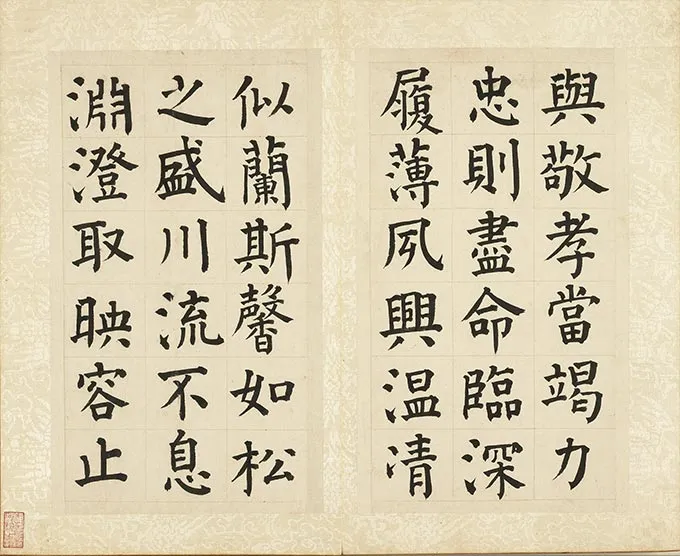 與敬孝當竭力
忠則盡命臨深
履薄夙興温凊
似蘭斯馨如松
之盛川流不息
淵澄取映容止